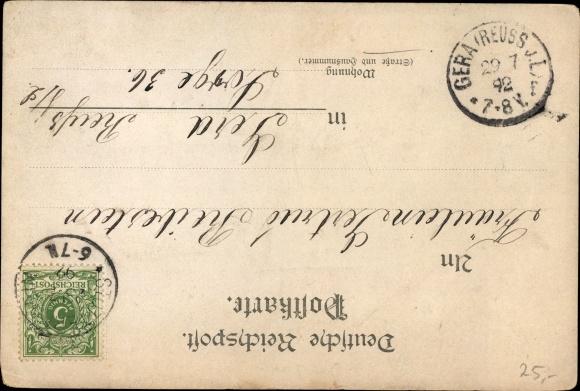 Deutsche Reichspost.
Postkarte.
REICHSPOST
5
6-7N.
An
Fräulein Gertrud
in Gera
Reuß j/L
Wohnung
(Straße und Hausnummer.)
Sorge 36.
GERA (REUSS J.L.)
29 7
92
*7-8V.
25,-